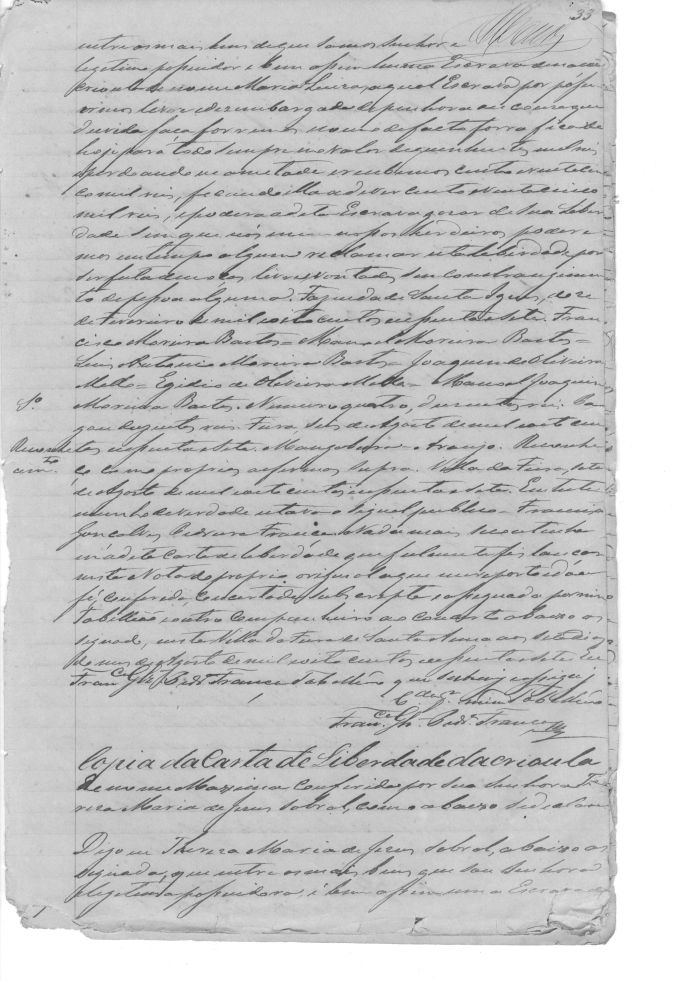 33
entre os mais bens de que somos Senhor e
legitimo possuidor é bem assim huma Escrava de nação
crioula de nome Maria Luiza, a qual Escrava por possu
irmos livre e desembargada de penhora ou cousa que
duvida faça forremos como de facto forra fica de
hoje para todo sempre no valor de quinhentos mil reis
perdoando a metade e recebemos cento e vinte e cin
co mil reis, ficando Ella a dever cento e vinte cinco
mil reis, e poderá a dita Escrava gosar de sua Liber
dade sem que nós nem nossos herdeiros podere
mos em tempo algum reclamar esta liberdade por
ser feita de nossas livres vontades sem constrangimen
to de pessoa alguma. Fazenda de Santa Ignes, doze
de Fevereiro de mil oito centos cincoenta e sete. Fran
cisco Moreira Bastos = Manoel Moreira Bastos =
Luis Antonio Moreira Bastos = Joaquim de Oliveira
Mello = Egidio de Oliveira Mello = Manoel Joaquim
Moreira Bastos. Numero quatro, duzentos reis. Pa
gou duzentos reis. Feira, seis de Agosto de mil oito cen
Reconhe
cim.to
tos cincoenta e sete. Mangabeira = Araujo. Reconhe
ço as proprias as firmas supra. Villa da Feira, sete
de Agosto de mil oito centos cincoenta e sete. Em teste
munho de verdade estava o signal publico = Francisco
Gonçalves Pedreira Franca. Nada mais se continha
em a dita Carta de liberdade que fielmente fis lançar
nesta Nota do proprio original a que me reporto e dou
fé, conferida concertada, subscripta e assignada por mim
Tabellião e outro companheiro ao concerto abaixo as
signado, nesta Villa da Feira de Santa Anna aos sete dias
do mes de Agosto de mil oito centos cincoenta e sete. Eu
Fran.co Glz' Pedr.a Franca Tabellião que subscrevy e assignei
C. por mim Tabellião
Fran.co Glz. Pedr.a Franca
Copia da Carta de Liberdade da crioula
de nome Maximia conferida por sua Senhora The
reza Maria de Jesus Sobral, como abaixo se declara
Digo eu Thereza Maria de Jesus Sobral, abaixo as
signada, que entre os mais bens que sou Senhora
e legitima possuidora, é bem assim uma Escrava de